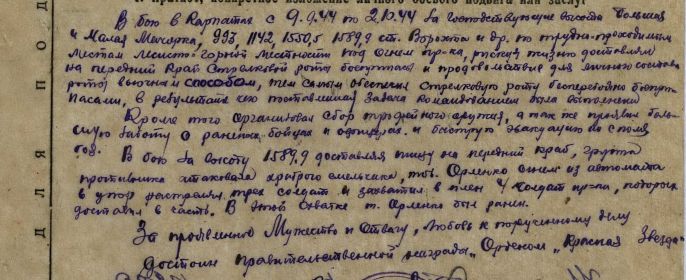 I Краткое, конкретное изложение личного боевого подвига или заслуг
В бою в Карпатах с 9.9.44 по 2.10.44 за господствующие высоты Большая
и Малая 993, 1142, 1550,5 1589,9 ст. Ворохта и др. по трудно-проходимым
местам лесисто горной местности под огнем пр-ка, рискуя жизнью доставлял
на передний край стрелковой роте боеприпасы и продовольствие для личного состава
роты вьючным способом, тем самым обеспечил стрелковую роту бесперебойно боепри-
пасами, в результате чего поставленная задача командованием была выполнена
Кроме того организовал сбор трофейного оружия, а так же проявил боль-
шую заботу о раненых бойцах и офицерах и быструю эвакуацию их с поля
боя.
В бою за высоту 1589,9 доставляя пищу на передний край, группа
противника атаковала храброго смельчака, тов. Орленко огнем из автомата
в упор расстрелял трех солдат и захватил в плен 4 солдат пр-ка, которых
доставил в часть. В этой схватке т. Орленко был ранен.
За проявленно Мужество и Отвагу, Любовь к порученному делу
достоин правительственной награды „Орденом „Красная Звезда"
ДЛЯ ПОД